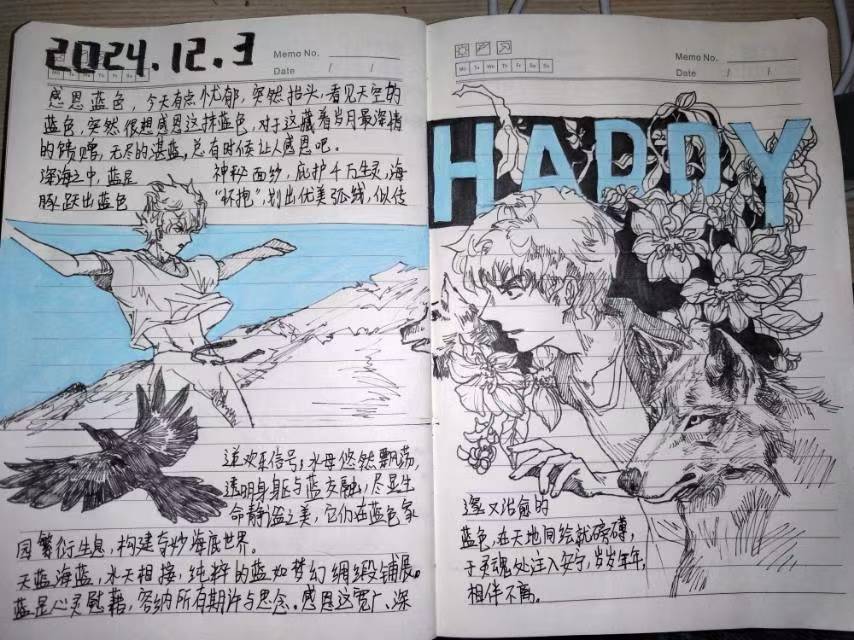 2024.12.3
Memo No.
Date / /
Mo Tu We Th Fr Sa Su
感恩蓝色，今天有点忧郁，突然抬头，看见天空的
蓝色，突然很想感恩这抹蓝色，对于这藏着岁月最深情
的馈赠，无尽的湛蓝，总有时候让人感恩吧。
深海之中，蓝是 神秘面纱，庇护千万生灵，海
豚跃出蓝色 “怀抱”，划出优美弧线，似传
递欢乐信号；水母悠然飘荡，
透明身躯与蓝交融，尽显生
命静谧之美，它们在蓝色家
园繁衍生息，构建奇妙海底世界。
天蓝海蓝，水天相接，纯粹的蓝如梦幻绸缎铺展。
蓝是心灵慰藉，容纳所有期许与思念。感恩这宽广、深
Memo No.
Mo Tu We Th Fr Sa Su
Date / /
HAPPY
邃又治愈的
蓝色，在天地间绘就磅礴，
于灵魂处注入安宁，岁岁年年，
相伴不离。